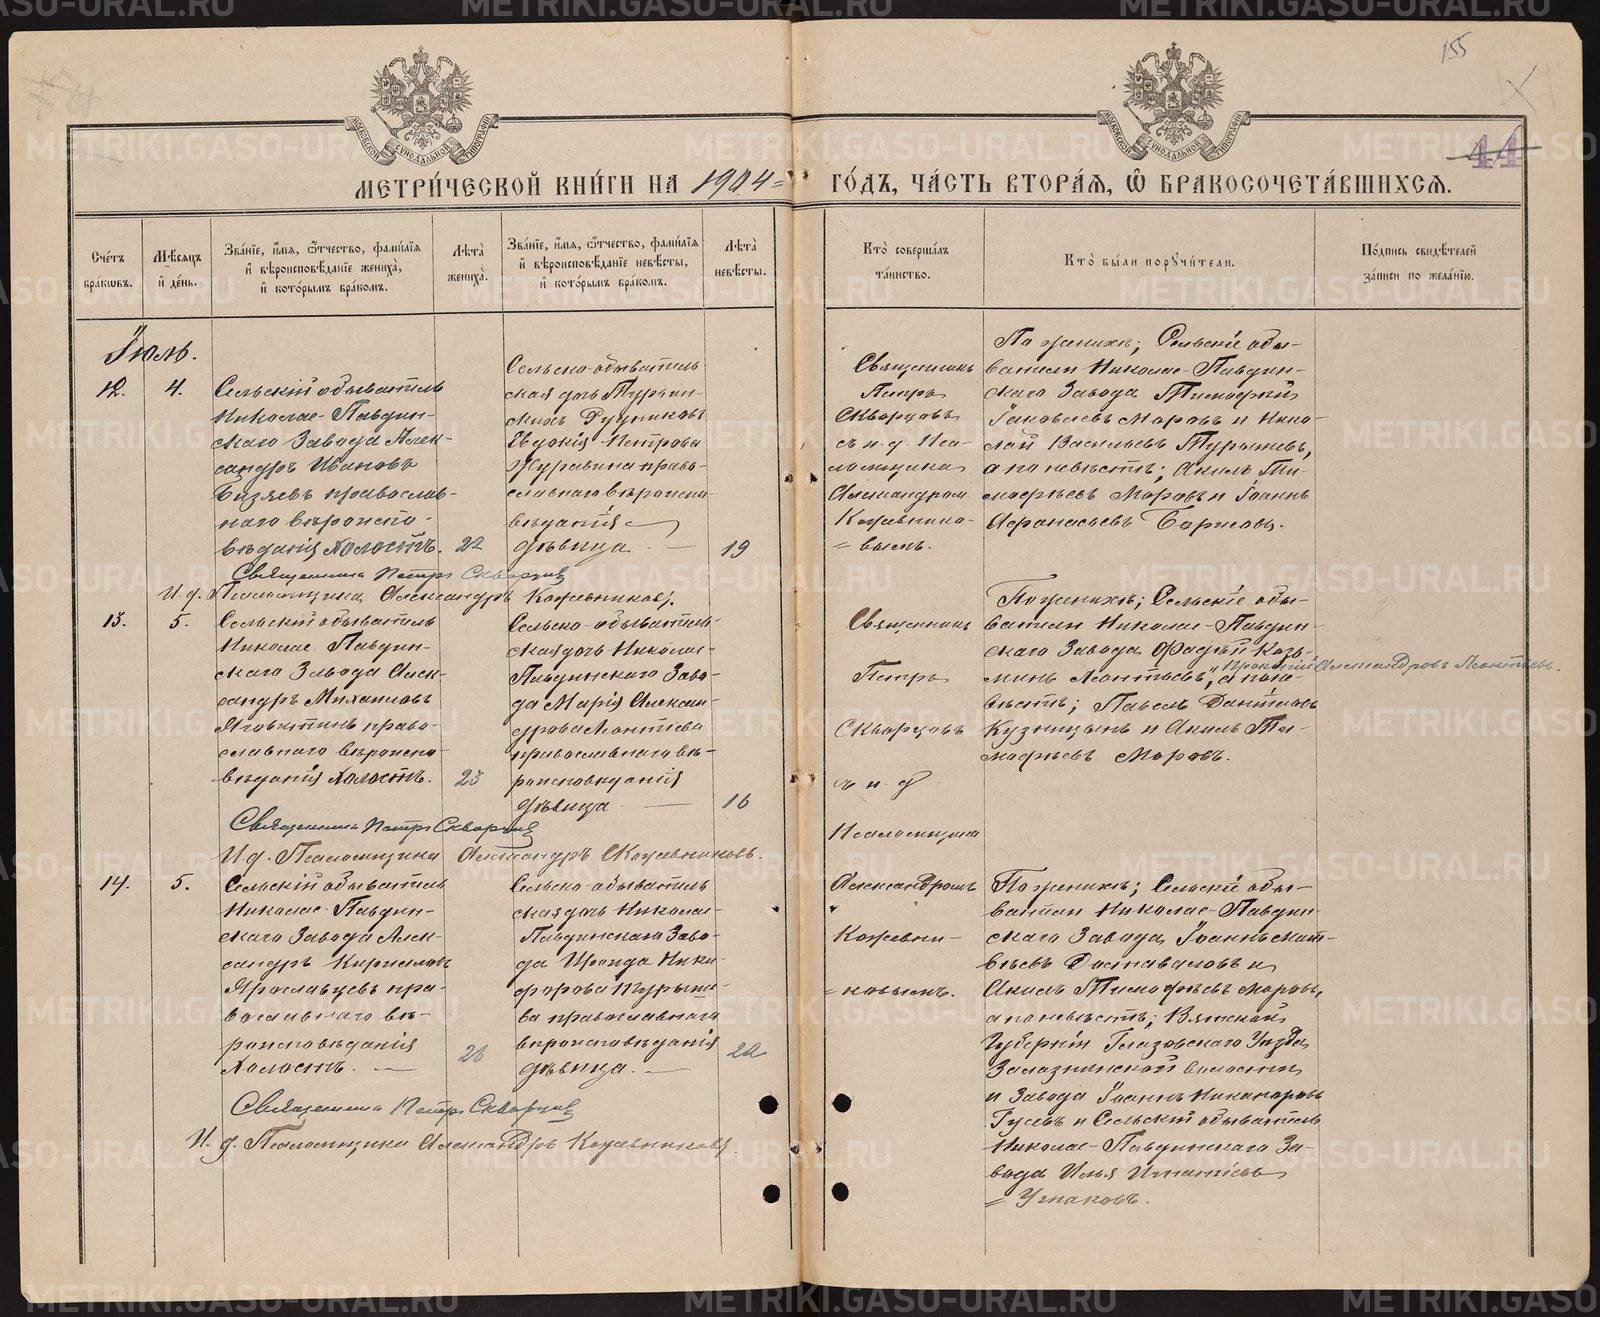 155
44
МЕТРИ́ЧЕСКОЙ КНИ́ГИ НА 1904= ГО́ДЪ, ЧА́СТЬ ВТОРА́Я, Ѿ БРАКОСОЧЕТА́ВШИХСЯ.
Сче́тъ бра́кѡвъ.
Мѣ́сяцъ и҆ де́нь.
Зва́нїе, и҆́мя, ѻ҆́тчество, фами́лїя и҆ вѣроисповѣ́данїе жениха̀, и҆ кото́рымъ бра́комъ.
Лѣ́та жениха̀.
Зва́нїе, и҆́мя, ѻ҆́тчество, фами́лїя и҆ вѣроисповѣ́данїе невѣ́сты, и҆ кото́рымъ бра́комъ.
Лѣ́та невѣ́сты.
Кто̀ соверша́лъ та́инство.
Кто̀ бы́ли поручи́тели.
По́дпись свидѣ́телей за́писи по жела́нїю.
Іюль.
12.
4.
Сельскій обыватель
Николае-Павдин-
скаго Завода Алек-
сандръ Ивановъ
православ-
наго вѣроиспо-
вѣданія холостъ.
22
Сельско-обыватель-
ская дочь Турьин-
скихъ Рудниковъ
Евдокія Петрова
Журавина право-
славнаго вѣроиспо-
вѣданія
дѣвица.
19
Священникъ
Петръ
Скворцовъ
съ и. д. Пса-
ломщика
Александром
Кожевнико-
=вымъ.
По женихѣ; Сельскіе обы-
ватели Николае-Павдин-
скаго Завода Тимофей
Іаковлевъ Моровъ и Нико-
лай Васильевъ Турышевъ,
а по невѣстѣ; Акилъ Ти-
мофѣевъ Моровъ и Іоаннъ
Афанасьевъ Борисовъ.
Священникъ Петръ Скворцовъ
И. д. Псаломщика Александръ Кожевниковъ.
13.
5.
Сельскій обыватель
Николае Павдин-
скаго Завода Алек-
сандръ Михаиловъ
право-
славнаго вѣроиспо-
вѣданія холостъ.
23
Сельско-обыватель-
ская дочь Николае-
Павдинскаго Заво-
да Марія Алексан-
дрова Леонтіева
православнаго вѣ-
роисповѣданія
дѣвица.
16
Священникъ
Петръ
Скворцовъ
съ и. д
Псаломщика
Александромъ
Кожевни-
=ковымъ.
По женихѣ; Сельскіе обы-
ватели Николае-Павдин-
скаго Завода Фадѣй Козь-
минъ Леонтьевъ, и Прокопій Александровъ Леонтьевъ. а по не-
вѣстѣ; Павелъ Даніиловъ
Кузницынъ и Акилъ Ти-
мофѣевъ Моровъ.
Священникъ Петръ Скворцовъ
И д. Псаломщика Александръ Кожевниковъ.
14.
5.
Сельскій обыватель
Николае-Павдин-
скаго Завода Алек-
сандръ Кирилловъ
Ярославцевъ пра-
вославнаго вѣ-
роисповѣданія
Холостъ.
26
Сельско-обыватель
ская дочь Николае-
Павдинскаго Заво-
да Ироида Ники-
форова Турыше-
ва православнаго
вѣроисповѣданія
дѣвица.
22
По женихѣ; Сельскіе обы-
ватели Николае-Павдин-
скаго Завода, Іоаннъ Мат-
вѣевъ Доставаловъ и
Акилъ Тимофѣевъ Моровъ,
а по невѣстѣ; Вятской
Губерніи Глазовскаго Уѣзда,
Залазнинской волости
и Завода Іоаннъ Никаноровъ
Гусевъ и Сельскій обыватель
Николае-Павдинскаго За-
вода Илья Игнатіевъ
=Ушаковъ.
Священникъ Петръ Скворцовъ
И. д. Псаломщика Александръ Кожевниковъ.
METRIKI.GASO-URAL.RU